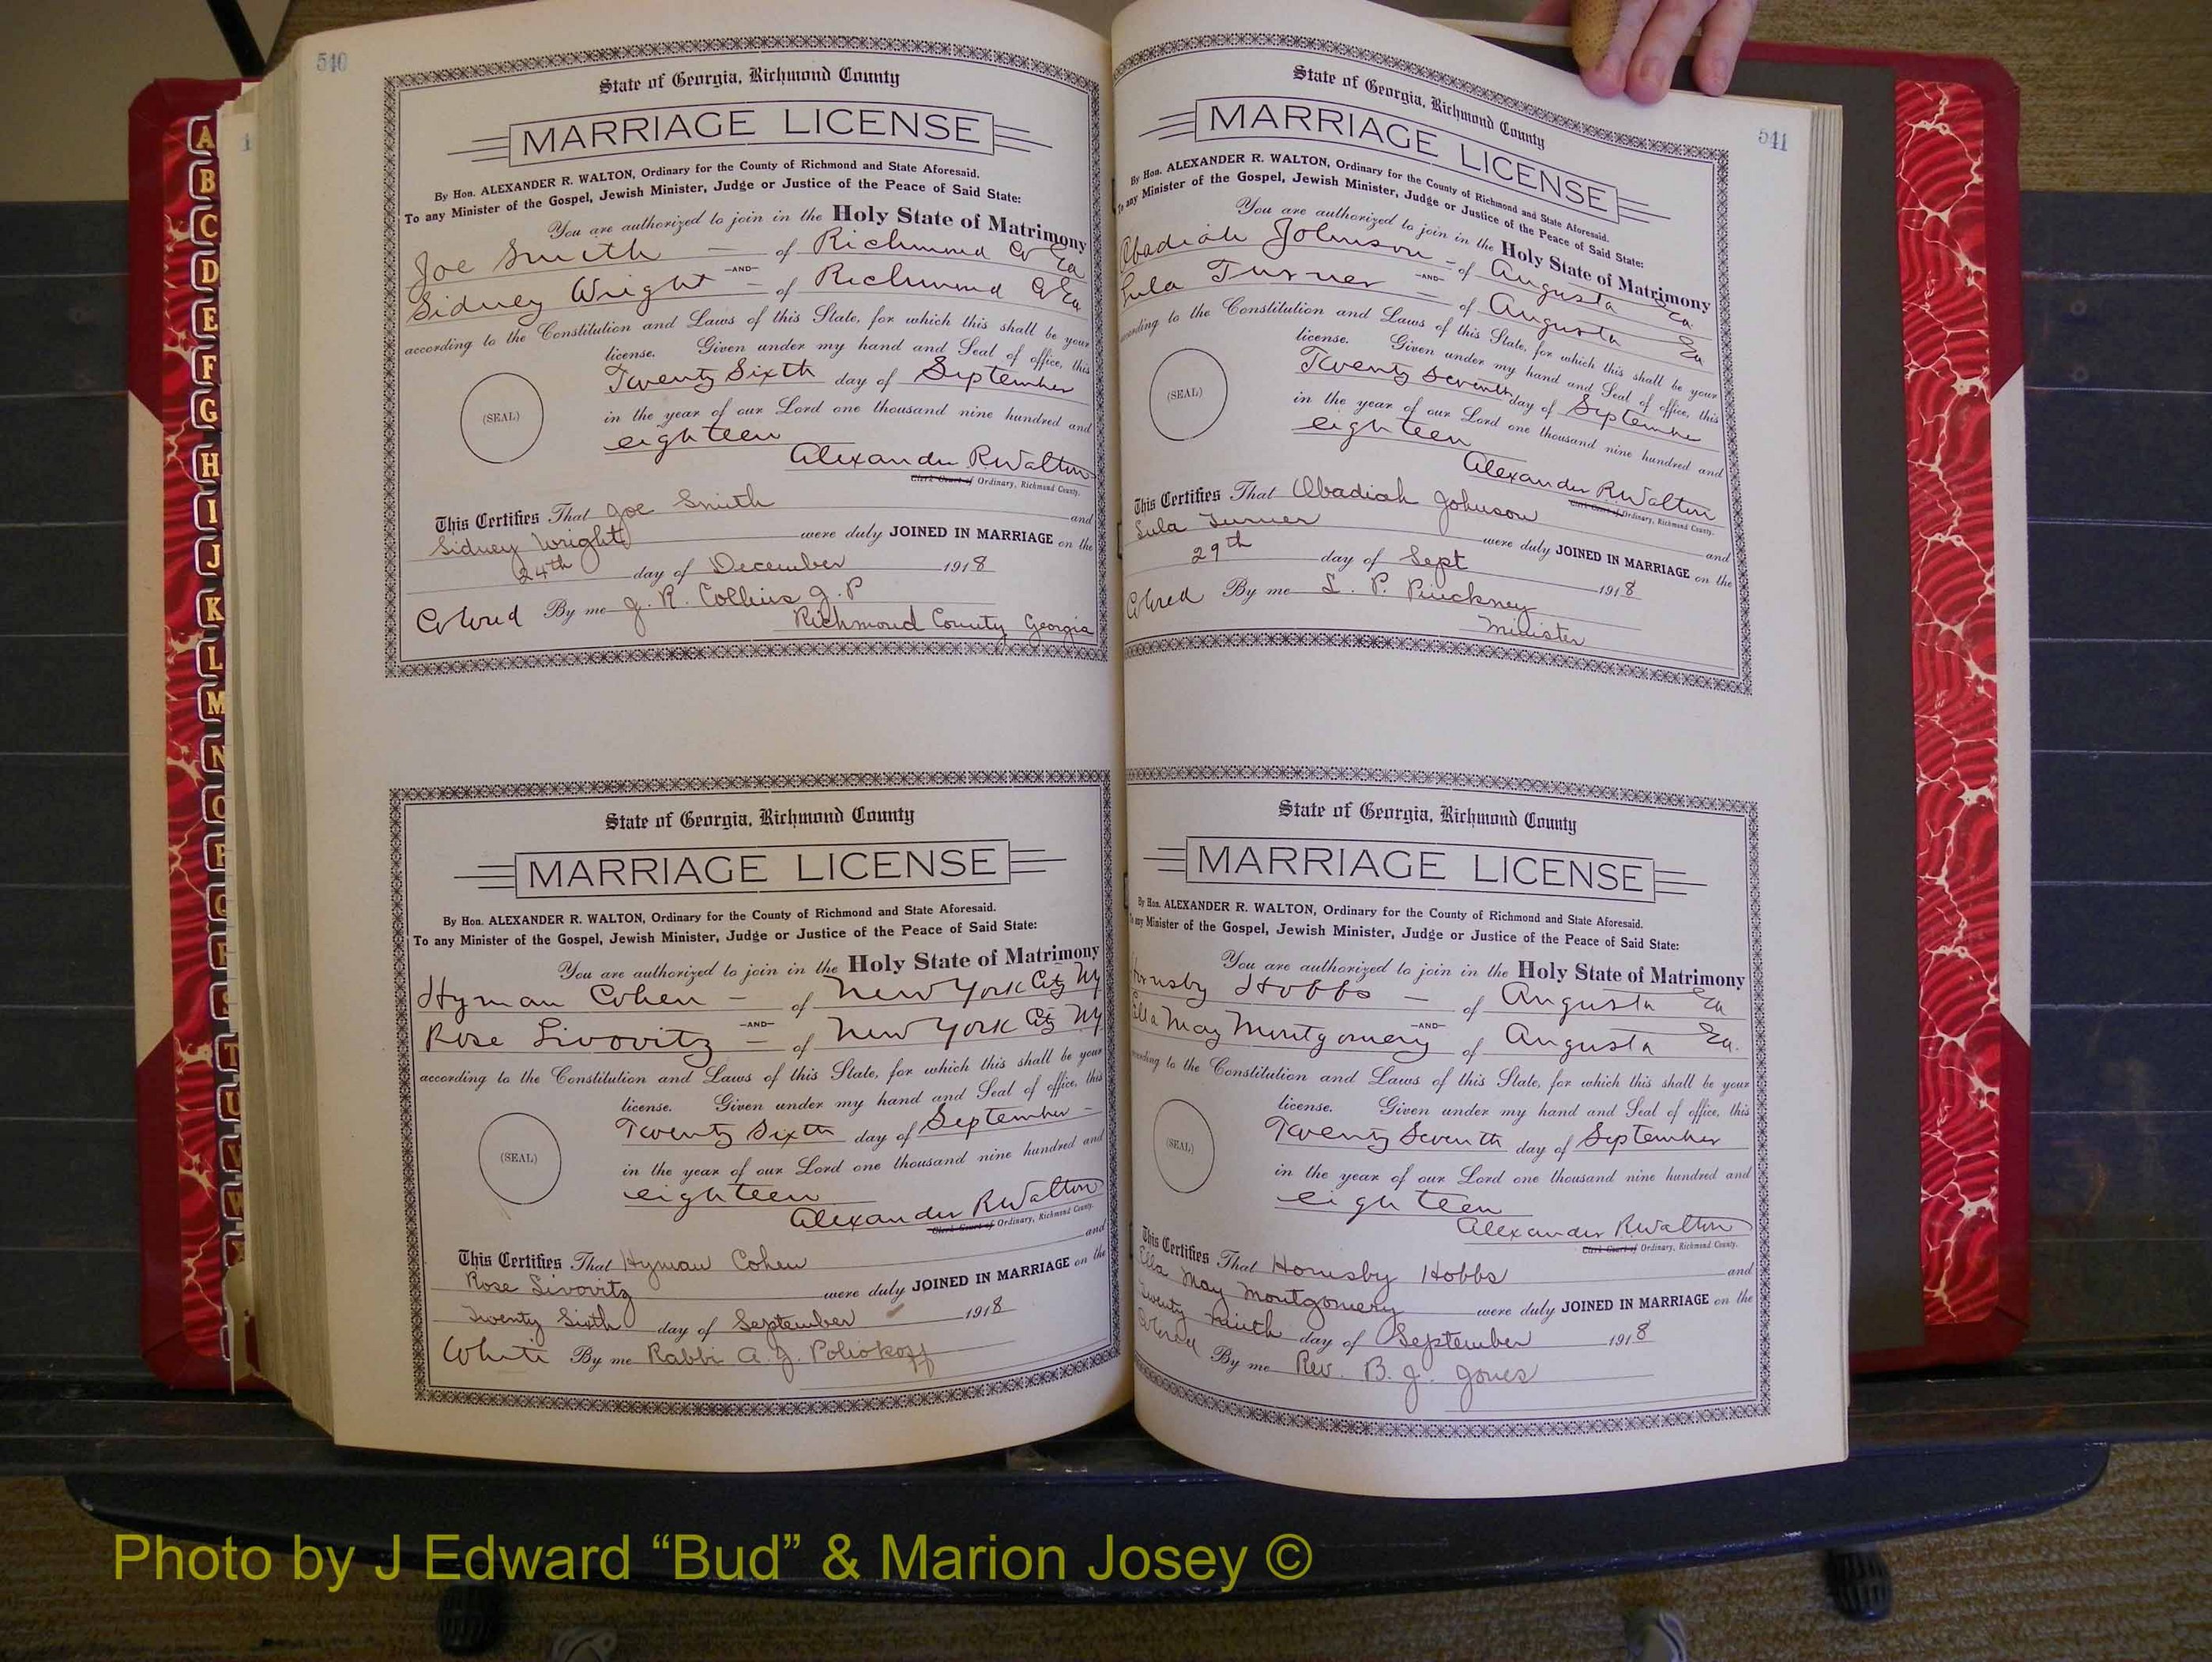 540
State of Georgia, Richmond County
MARRIAGE LICENSE
By Hon. ALEXANDER R. WALTON, Ordinary for the County of Richmond and State Aforesaid.
To any Minister of the Gospel, Jewish Minister, Judge or Justice of the Peace of Said State:
You are authorized to join in the Holy State of Matrimony
Joe Smith — of Richmond Co Ga
—AND—
Sidney Wright — of Richmond Co Ga
according to the Constitution and Laws of this State, for which this shall be your
license. Given under my hand and Seal of office, this
Twenty Sixth day of September
(SEAL)
in the year of our Lord one thousand nine hundred and
eighteen
Alexander R Walton
Clerk Court of Ordinary, Richmond County.
This Certifies That Joe Smith and
Sidney Wright were duly JOINED IN MARRIAGE on the
24th day of December 1918
Colored By me J. R. Collins J. P
Richmond County Georgia
State of Georgia, Richmond County
MARRIAGE LICENSE
By Hon. ALEXANDER R. WALTON, Ordinary for the County of Richmond and State Aforesaid.
To any Minister of the Gospel, Jewish Minister, Judge or Justice of the Peace of Said State:
You are authorized to join in the Holy State of Matrimony
Hyman Cohen — of New York City NY
—AND—
Rose Sivovitz — of New York City NY
according to the Constitution and Laws of this State, for which this shall be your
license. Given under my hand and Seal of office, this
Twenty Sixth day of September —
(SEAL)
in the year of our Lord one thousand nine hundred and
eighteen
Alexander R Walton
Clerk Court of Ordinary, Richmond County.
This Certifies That Hyman Cohen and
Rose Sivovitz were duly JOINED IN MARRIAGE on the
Twenty Sixth day of September 1918
White By me Rabbi A. J. Poliokoff
541
State of Georgia, Richmond County
MARRIAGE LICENSE
By Hon. ALEXANDER R. WALTON, Ordinary for the County of Richmond and State Aforesaid.
To any Minister of the Gospel, Jewish Minister, Judge or Justice of the Peace of Said State:
You are authorized to join in the Holy State of Matrimony
Obadiah Johnson — of Augusta Ga.
—AND—
Lula Turner — of Augusta Ga
according to the Constitution and Laws of this State, for which this shall be your
license. Given under my hand and Seal of office, this
Twenty Seventh day of September
(SEAL)
in the year of our Lord one thousand nine hundred and
eighteen
Alexander R. Walton
Clerk Court of Ordinary, Richmond County.
This Certifies That Obadiah Johnson and
Lula Turner were duly JOINED IN MARRIAGE on the
29th day of Sept 1918
Colored By me L. P. Pinckney
Minister
State of Georgia, Richmond County
MARRIAGE LICENSE
By Hon. ALEXANDER R. WALTON, Ordinary for the County of Richmond and State Aforesaid.
To any Minister of the Gospel, Jewish Minister, Judge or Justice of the Peace of Said State:
You are authorized to join in the Holy State of Matrimony
Hornsby Hobbs — of Augusta Ga
—AND—
Ella May Montgomery of Augusta Ga.
according to the Constitution and Laws of this State, for which this shall be your
license. Given under my hand and Seal of office, this
Twenty Seventh day of September
(SEAL)
in the year of our Lord one thousand nine hundred and
eighteen
Alexander R Walton
Clerk Court of Ordinary, Richmond County.
This Certifies That Hornsby Hobbs and
Ella May Montgomery were duly JOINED IN MARRIAGE on the
Twenty Ninth day of September 1918
Colored By me Rev. B. J. Jones
A
B
C
D
E
F
G
H
I
J
K
L
M
N
O
P
Q
R
S
T
U
V
W
Photo by J Edward “Bud” & Marion Josey ©